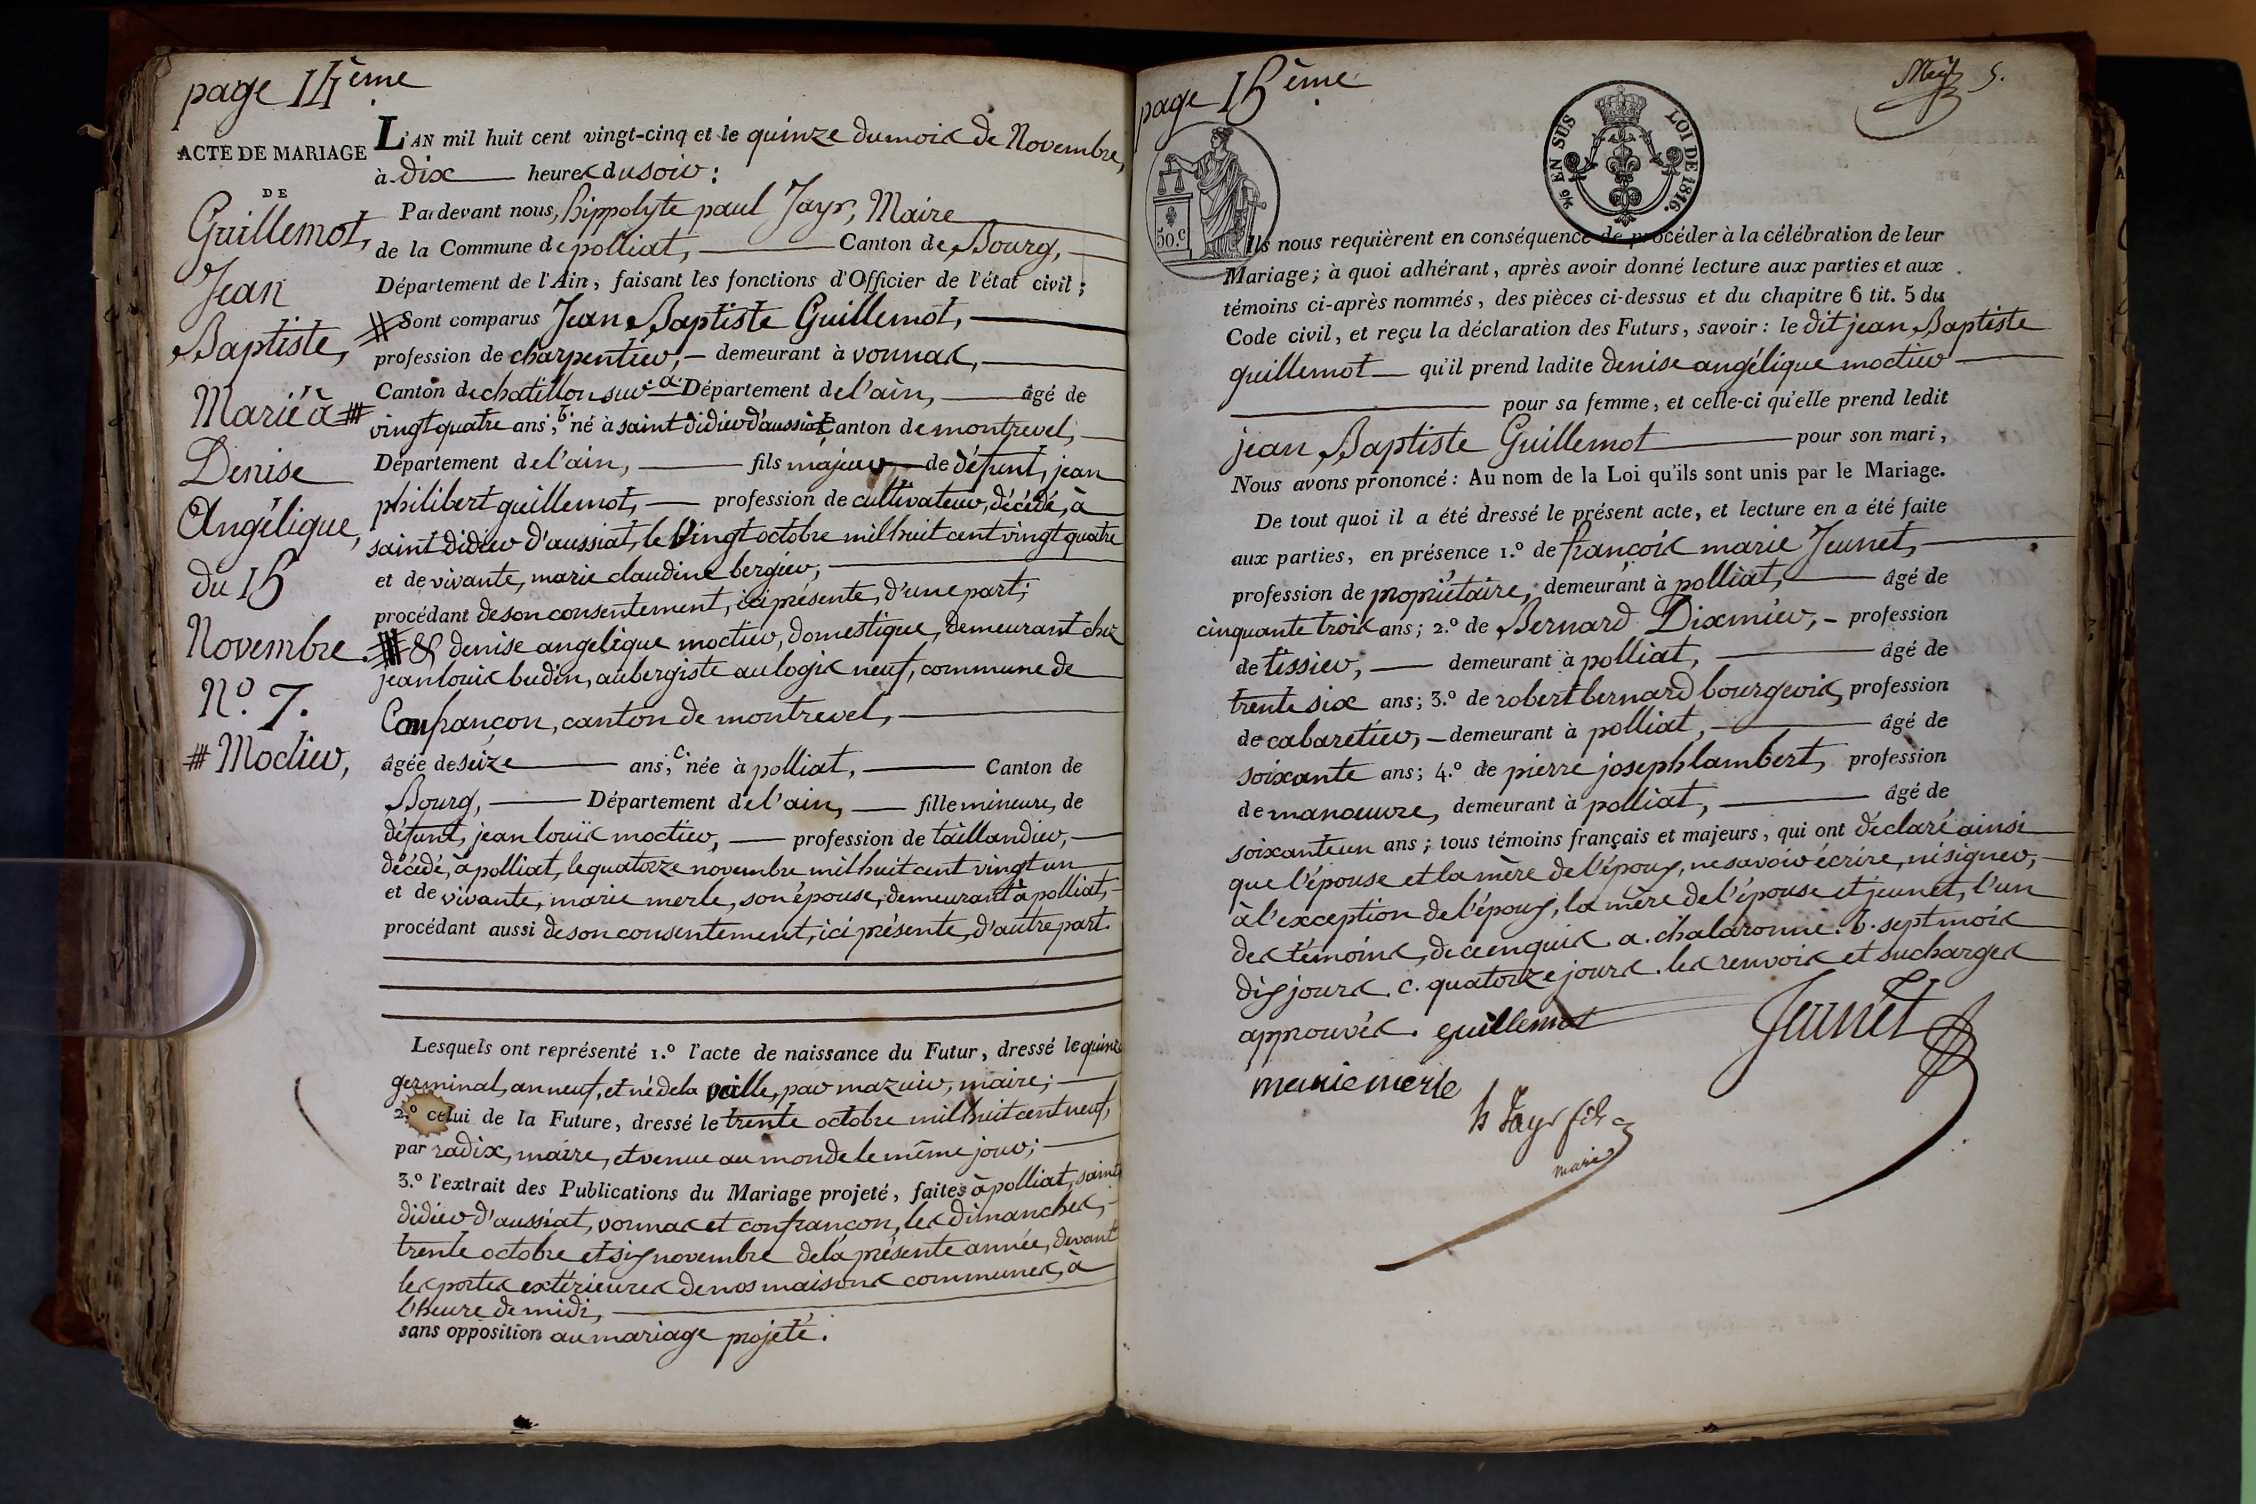 page 14ème
ACTE DE MARIAGE
DE
Guillemot,
Jean
Baptiste,
Marié à #
Denise
Angélique,
du 15
Novembre.
N.º 7.
# Moctier,
L'AN mil huit cent vingt-cinq et le quinze du mois de Novembre,
à dix heures du soir :
Pardevant nous, hippolyte paul Jayr, Maire
de la Commune de polliat, Canton de Bourg,
Département de l'Ain, faisant les fonctions d'Officier de l'état civil ;
# Sont comparus Jean Baptiste Guillemot,
profession de charpentier, demeurant à vonnas,
Canton de chatillon sur a Département de l'ain, âgé de
vingt quatre ans, b né à saint didier d'aussiat Canton de montrevel,
Département de l'ain, fils majeur, de défunt, jean
philibert guillemot, profession de cultivateur, décédé, à
saint didier d'aussiat, le vingt octobre mil huit cent vingt quatre
et de vivante, marie claudine bergier,
procédant de son consentement, ici présente, d'une part;
# & denise angelique moctier, domestique, demeurant chez
jean louis budin, aubergiste au logis neuf, commune de
Confrançon, canton de montrevel,
âgée de seize ans, c née à polliat, Canton de
Bourg, Département de l'ain, fille mineure, de
défunt, jean louis moctier, profession de taillandier,
décédé, à polliat, le quatorze novembre mil huit cent vingt un
et de vivante, marie merle, son épouse, demeurant à polliat,
procédant aussi de son consentement, ici présente, d'autre part.
Lesquels ont représenté 1.º l'acte de naissance du Futur, dressé le quinze
germinal, an neuf, et né de la veille, par mazuir, maire;
2.º celui de la Future, dressé le trente octobre mil huit cent neuf,
par radix, maire, et venue au monde le même jour;
3.º l'extrait des Publications du Mariage projeté, faites à polliat, saint
didier d'aussiat, vonnas et confrançon, les dimanches,
trente octobre et six novembre de la présente année, devant
les portes extérieures de nos maisons communes, à
l'heure de midi,
sans opposition au mariage projeté.
page 15ème
5.
50.c
9/6 EN SUS LOI DE 1816.
Ils nous requièrent en conséquence de procéder à la célébration de leur
Mariage ; à quoi adhérant, après avoir donné lecture aux parties et aux
témoins ci-après nommés, des pièces ci-dessus et du chapitre 6 tit. 5 du
Code civil, et reçu la déclaration des Futurs, savoir : le dit jean Baptiste
guillemot qu'il prend ladite denise angélique moctier
pour sa femme, et celle-ci qu'elle prend ledit
jean Baptiste Guillemot pour son mari,
Nous avons prononcé : Au nom de la Loi qu'ils sont unis par le Mariage.
De tout quoi il a été dressé le présent acte, et lecture en a été faite
aux parties, en présence 1.º de françois marie Jeunet,
profession de propriétaire, demeurant à polliat, âgé de
cinquante trois ans ; 2.º de Bernard Dixmier, profession
de tissier, demeurant à polliat, âgé de
trente six ans ; 3.º de robert bernard bourgeois, profession
de cabaretier, demeurant à polliat, âgé de
soixante ans ; 4.º de pierre joseph lambert, profession
de manœuvre, demeurant à polliat, âgé de
soixante un ans ; tous témoins français et majeurs, qui ont déclaré ainsi
que l'épouse et la mère de l'époux, ne savoir écrire, ni signer,
à l'exception de l'époux, la mère de l'épouse et jeunet, l'un
des témoins, de ce enquis. a. chalaronne. b. sept mois
dix jours. c. quatorze jours. les renvois et sucharges
approuvés. guillemot Jeunet
marie merle
h Jayr fils
maire